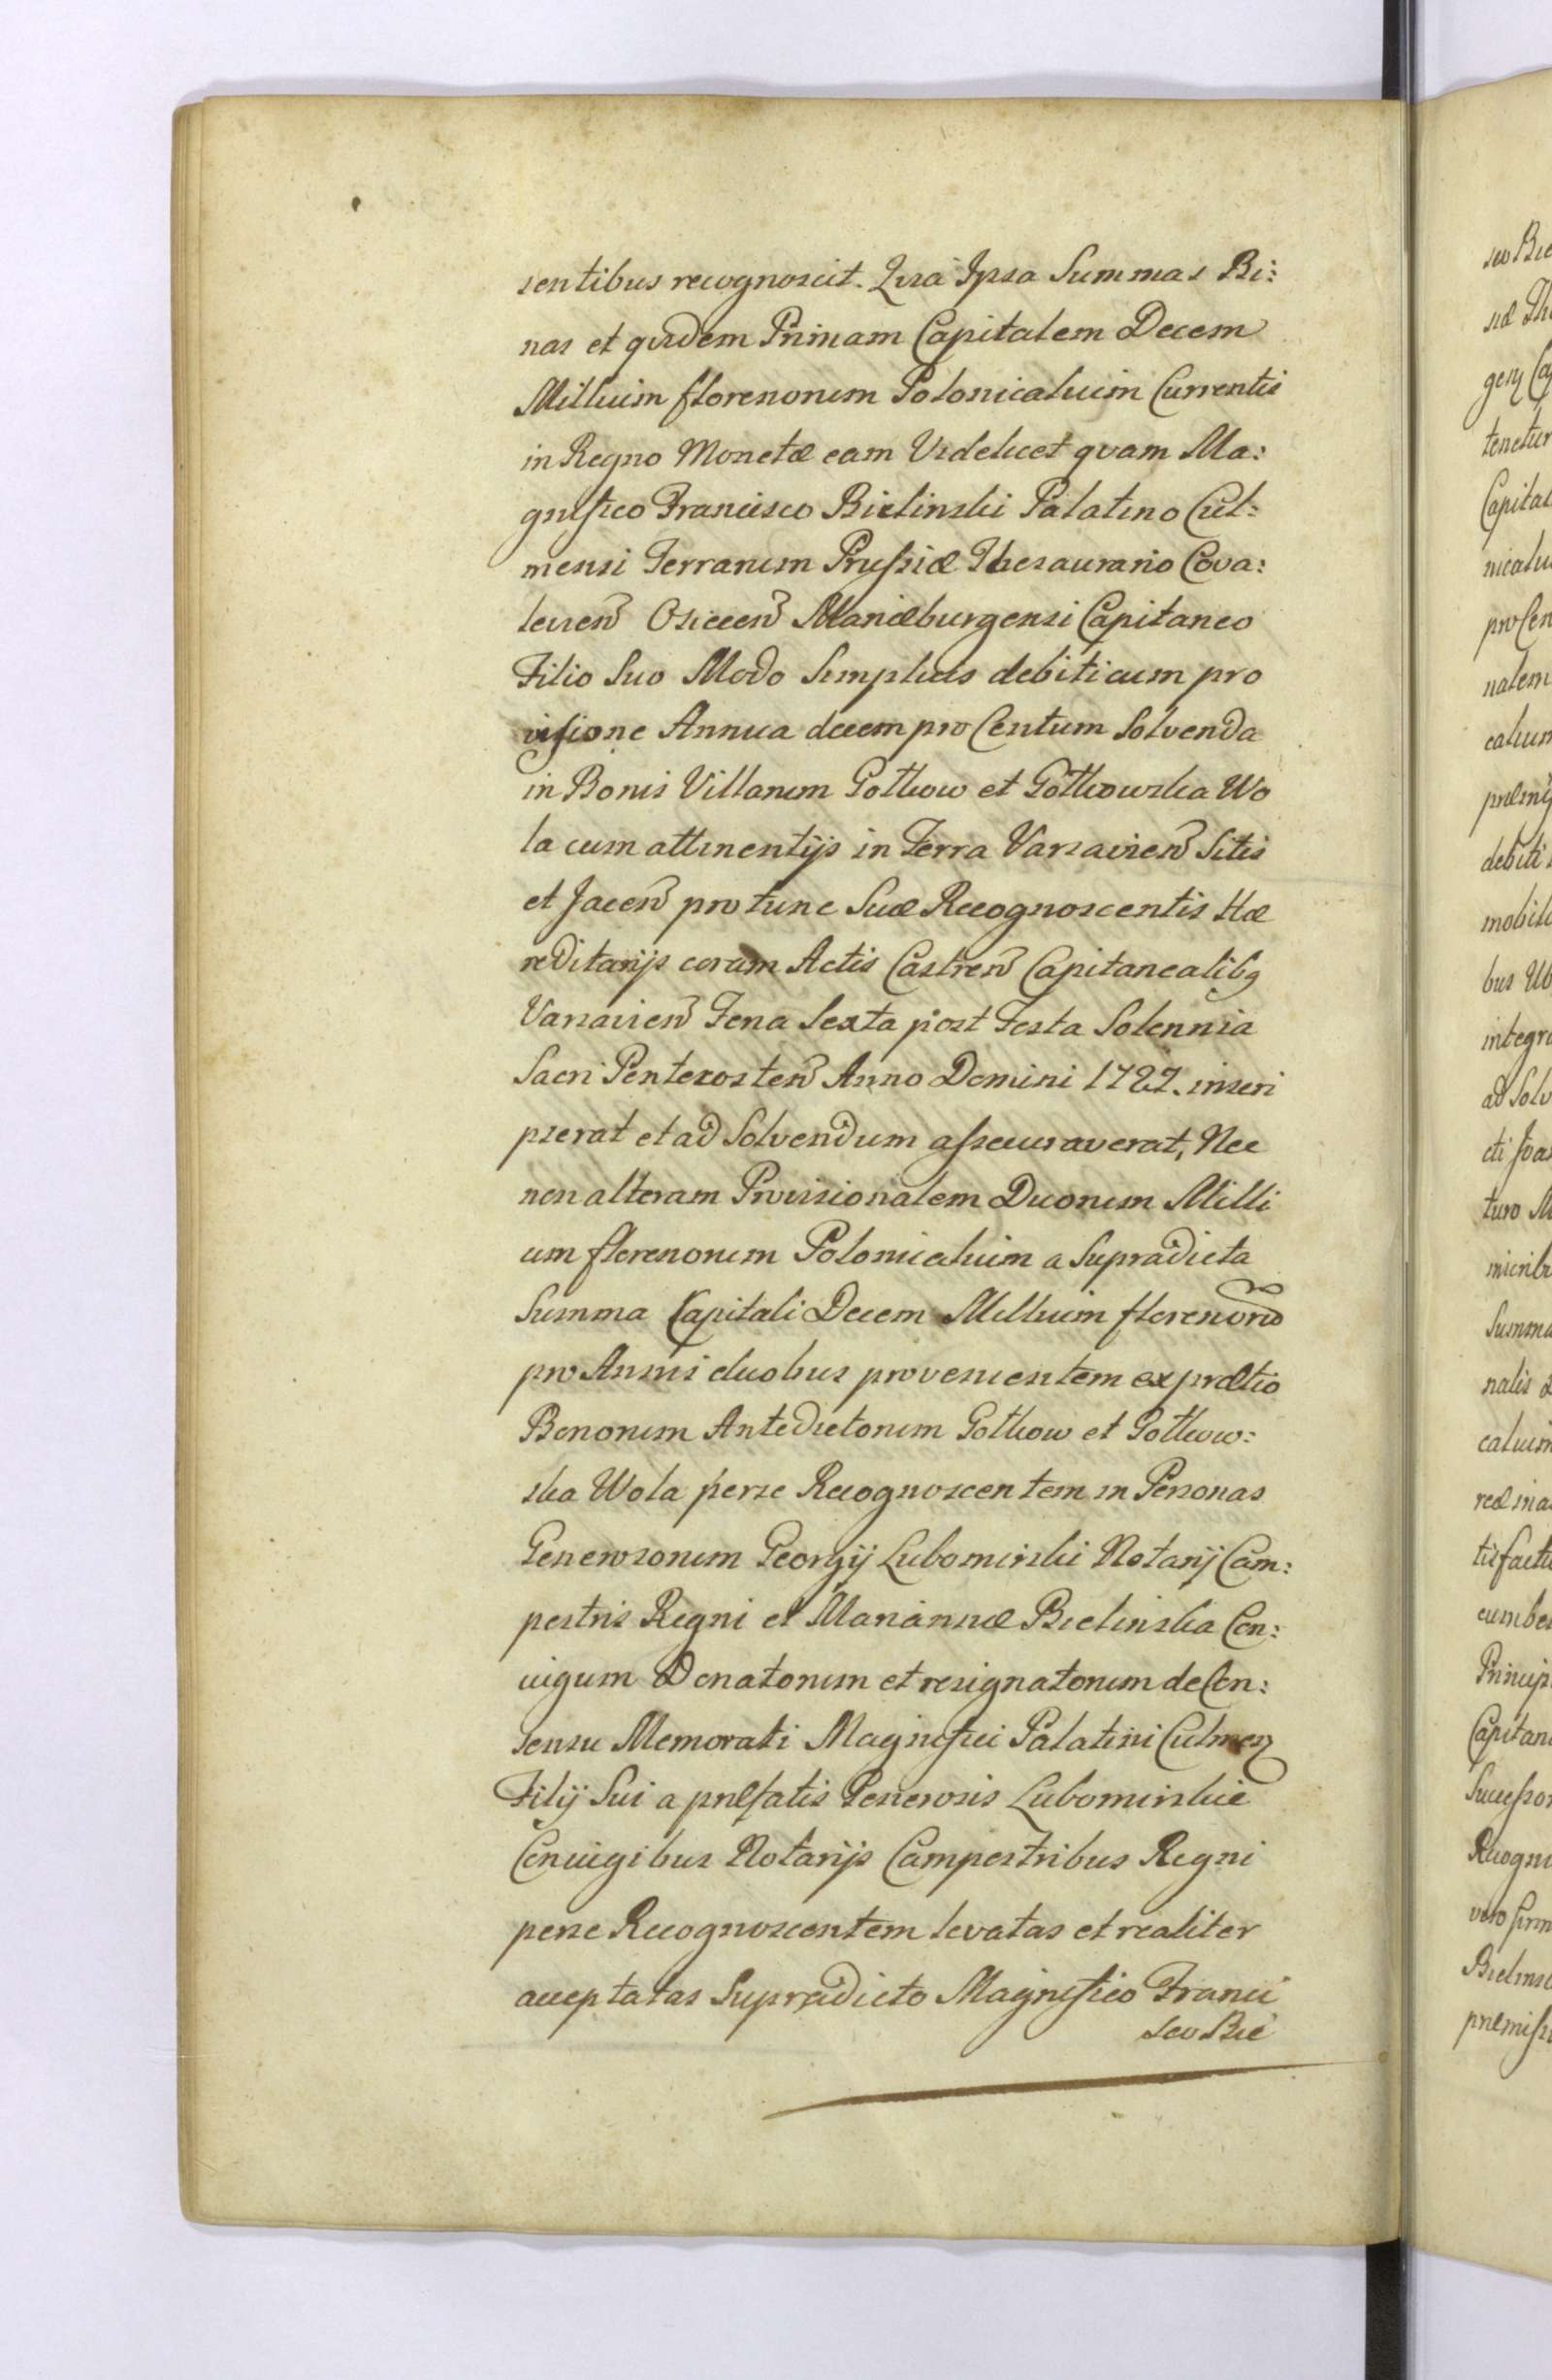 sentibus recognoscit. Qvia Ipsa Summas Bi:
nas et qvidem Primam Capitalem Decem
Millium florenorum Polonicalium Currentis
in Regno Monetæ eam Videlicet qvam Ma:
gnifico Francisco Bielinski Palatino Cul:
mensi Terrarum Prussiæ Thesaurario Cova:
levien Osiecen Mariæburgensi Capitaneo
Filio Suo Modo Simplicis debiti cum pro
visione Annua decem pro Centum Solvenda
in Bonis Villarum Gotkow et Gotkowska Wo
la cum attinentijs in Terra Varsavien Sitis
et Jacen pro tunc Suæ Recognoscentis Hæ
reditarijs coram Actis Castren Capitanealibq
Varsavien Feria Sexta post Festa Solennia
Sacri Pentecosten Anno Domini 1727. inscri
pserat et ad Solvendum assecuraverat, Nec
non alteram Provisionalem Duorum Milli
um florenorum Polonicalium a Supradicta
Summa Capitali Decem Millium florenoru
pro Annis duobus provenientem ex prætio
Bonorum Antedictorum Gotkow et Gotkow:
ska Wola per se Recognoscentem in Personas
Generosorum Georgij Lubomirski Notarij Cam:
pestris Regni et Mariannæ Bielinska Con:
iugum Donatorum et resignatorum de Con:
sensu Memorati Magnifici Palatini Culmen
Filij Sui a præfatis Generosis Lubomirskie
Coniugibus Notarijs Campestribus Regni
per se Recognoscentem levatas et realiter
acceptatas Supradicto Magnifico Franci
sco Bie